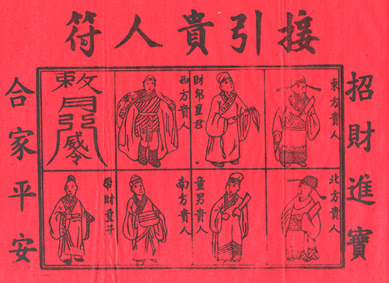 接引貴人符
招財進寶
東方貴人
財帛星君
西方貴人
敕
北方貴人
童男貴人
南方貴人
財童子
合家平安